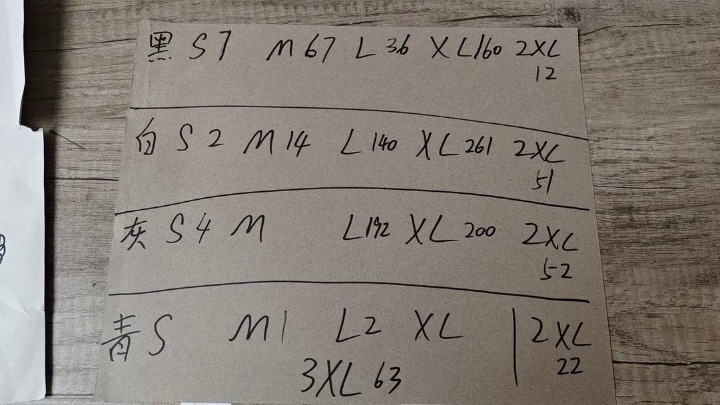 黑 S 7 M 67 L 36 XL 160 2XL
12
白 S 2 M 14 L 140 XL 261 2XL
51
灰 S 4 M L 192 XL 200 2XL
52
青 S M 1 L 2 XL 2XL
22
3XL 63